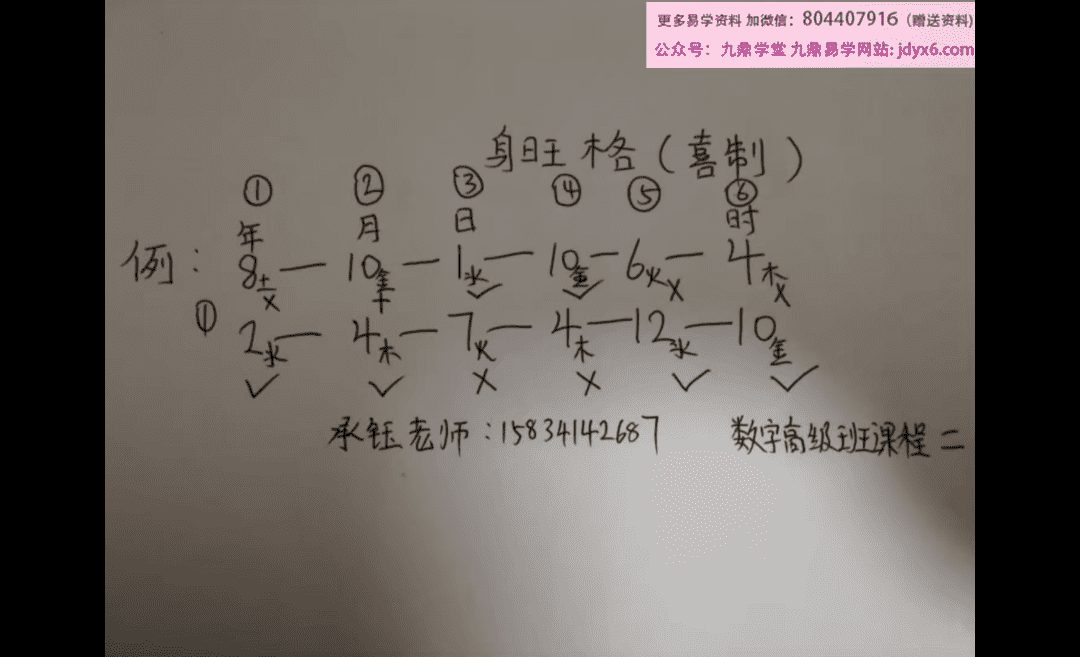 更多易学资料 加微信：804407916（赠送资料）
公众号：九鼎学堂 九鼎易学网站: jdyx6.com
身旺格（喜制）
① ② ③ ④ ⑤ ⑥
年 月 日 时
例： 8土 — 10金 — 1水 — 10金 — 6火 — 4木
X 十 ✓ ✓ X X
① 2水 — 4木 — 7火 — 4木 — 12水 — 10金
✓ ✓ X X ✓ ✓
承钰老师：15834142687 数字高级班课程二